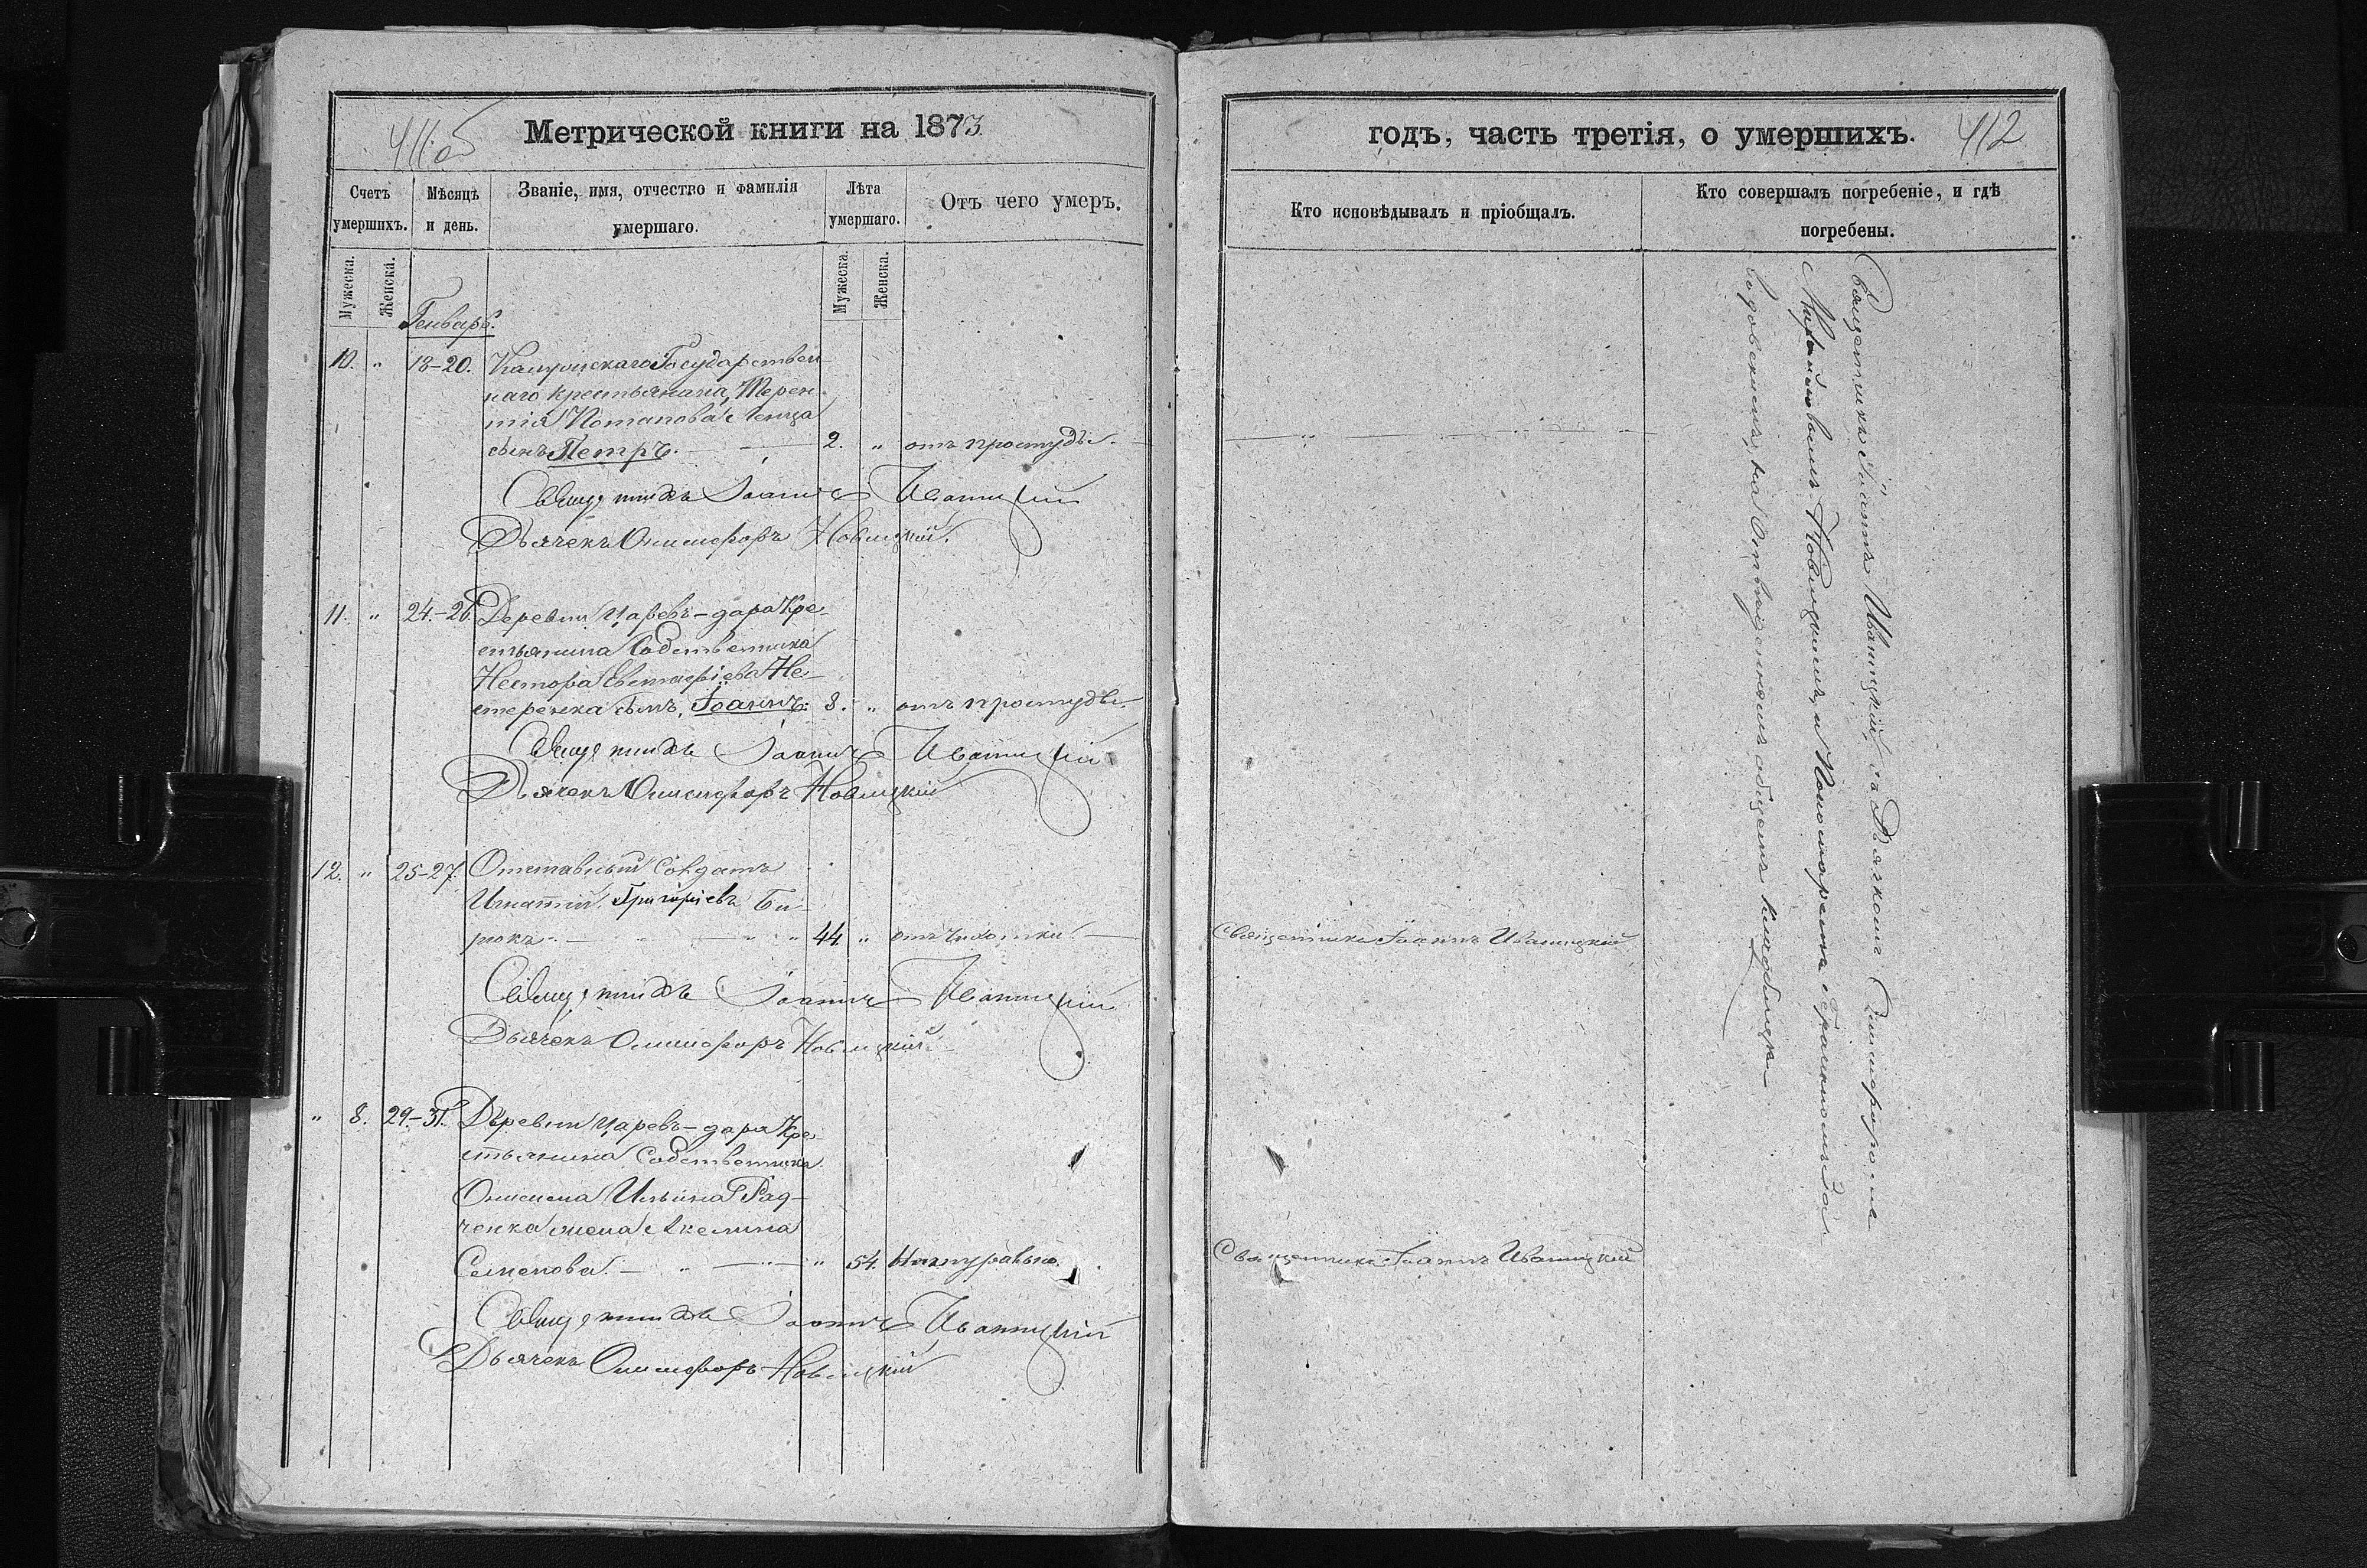 411об
Метрической книги на 1873
Счетъ умершихъ.
Мѣсяцъ и день.
Званіе, имя, отчество и фамилія умершаго.
Лѣта умершаго.
Отъ чего умеръ.
Мужеска.
Женска.
Мужеска.
Женска.
Генварь.
10. " 18-20. Государствен-
наго крестьянина, Терен-
тія Потапова
сынъ Петръ. 2. " отъ простуды.
Священникъ Іоаннъ Иваницкій
Дьячекъ Онисифоръ Новицкій.
11. " 24.-26. Деревни Царевъ-дара Кре-
стьянина Собственника
Нестора Евстафіева Не-
стеренка сынъ, Іоаннъ: 8. " отъ простуды.
Священникъ Іоаннъ Иваницкій
Дьячекъ Онисифоръ Новицкій
12. " 25-27. Отставный Солдатъ
Игнатій Григоріевъ Би-
рюкъ. " " 44. " отъ чихотки
Священникъ Іоаннъ Иваницкій
Дьячекъ Онисифоръ Новицкій
" 8. 29.-31. Деревни Царевъ-дара Кре-
стьянина Собственника
Онисима Ильина Рад-
ченка жена Акелина
Семенова. " " " 54. Натурально.
Священникъ Іоаннъ Иваницкій
Дьячекъ Онисифоръ Новицкій
годъ, часть третія, о умершихъ.
412
Кто исповѣдывалъ и пріобщалъ.
Кто совершалъ погребеніе, и гдѣ погребены.
Священникъ Іоаннъ Иваницкій
Священникъ Іоаннъ Иваницкій
Священникъ Іоаннъ Иваницкій, съ Дьячкомъ Онисифоромъ
Михайловымъ Новицкимъ, и Пономаремъ
на общемъ кладбищѣ